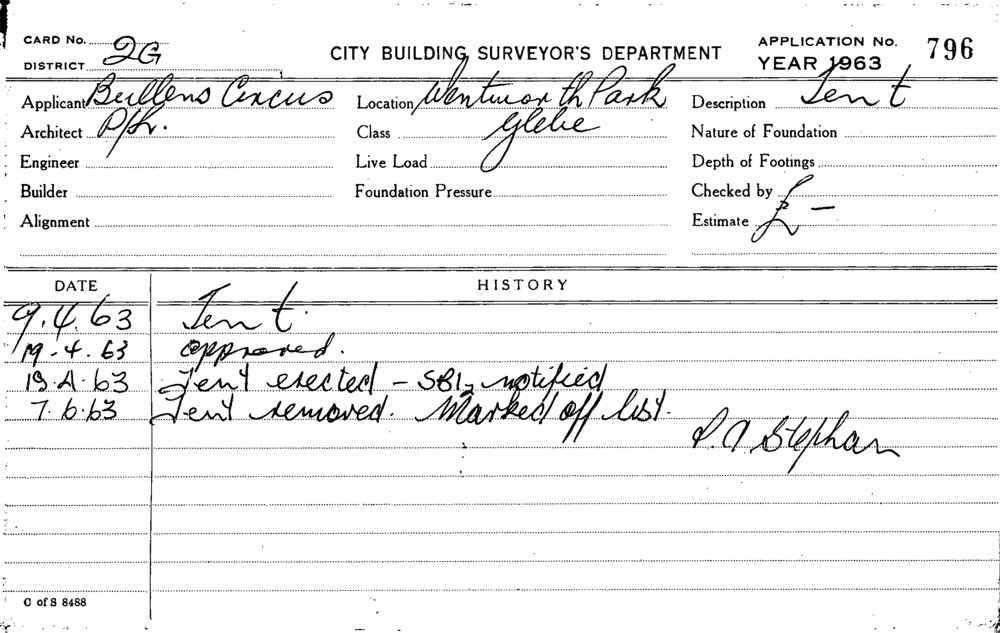 CARD No. 2G
DISTRICT
CITY BUILDING SURVEYOR'S DEPARTMENT
APPLICATION No. 796
YEAR 1963
Applicant Bullens Circus P/L.
Location Wentworth Park Glebe
Description Tent
Architect
Class
Nature of Foundation
Engineer
Live Load
Depth of Footings
Builder
Foundation Pressure
Checked by
Alignment
Estimate £ –
DATE HISTORY
9.4.63 Tent.
19-4.63 approved.
19.4.63 Tent erected – notified
7.6.63 Tent removed. Marked off list.
Stephan
C of S 8488